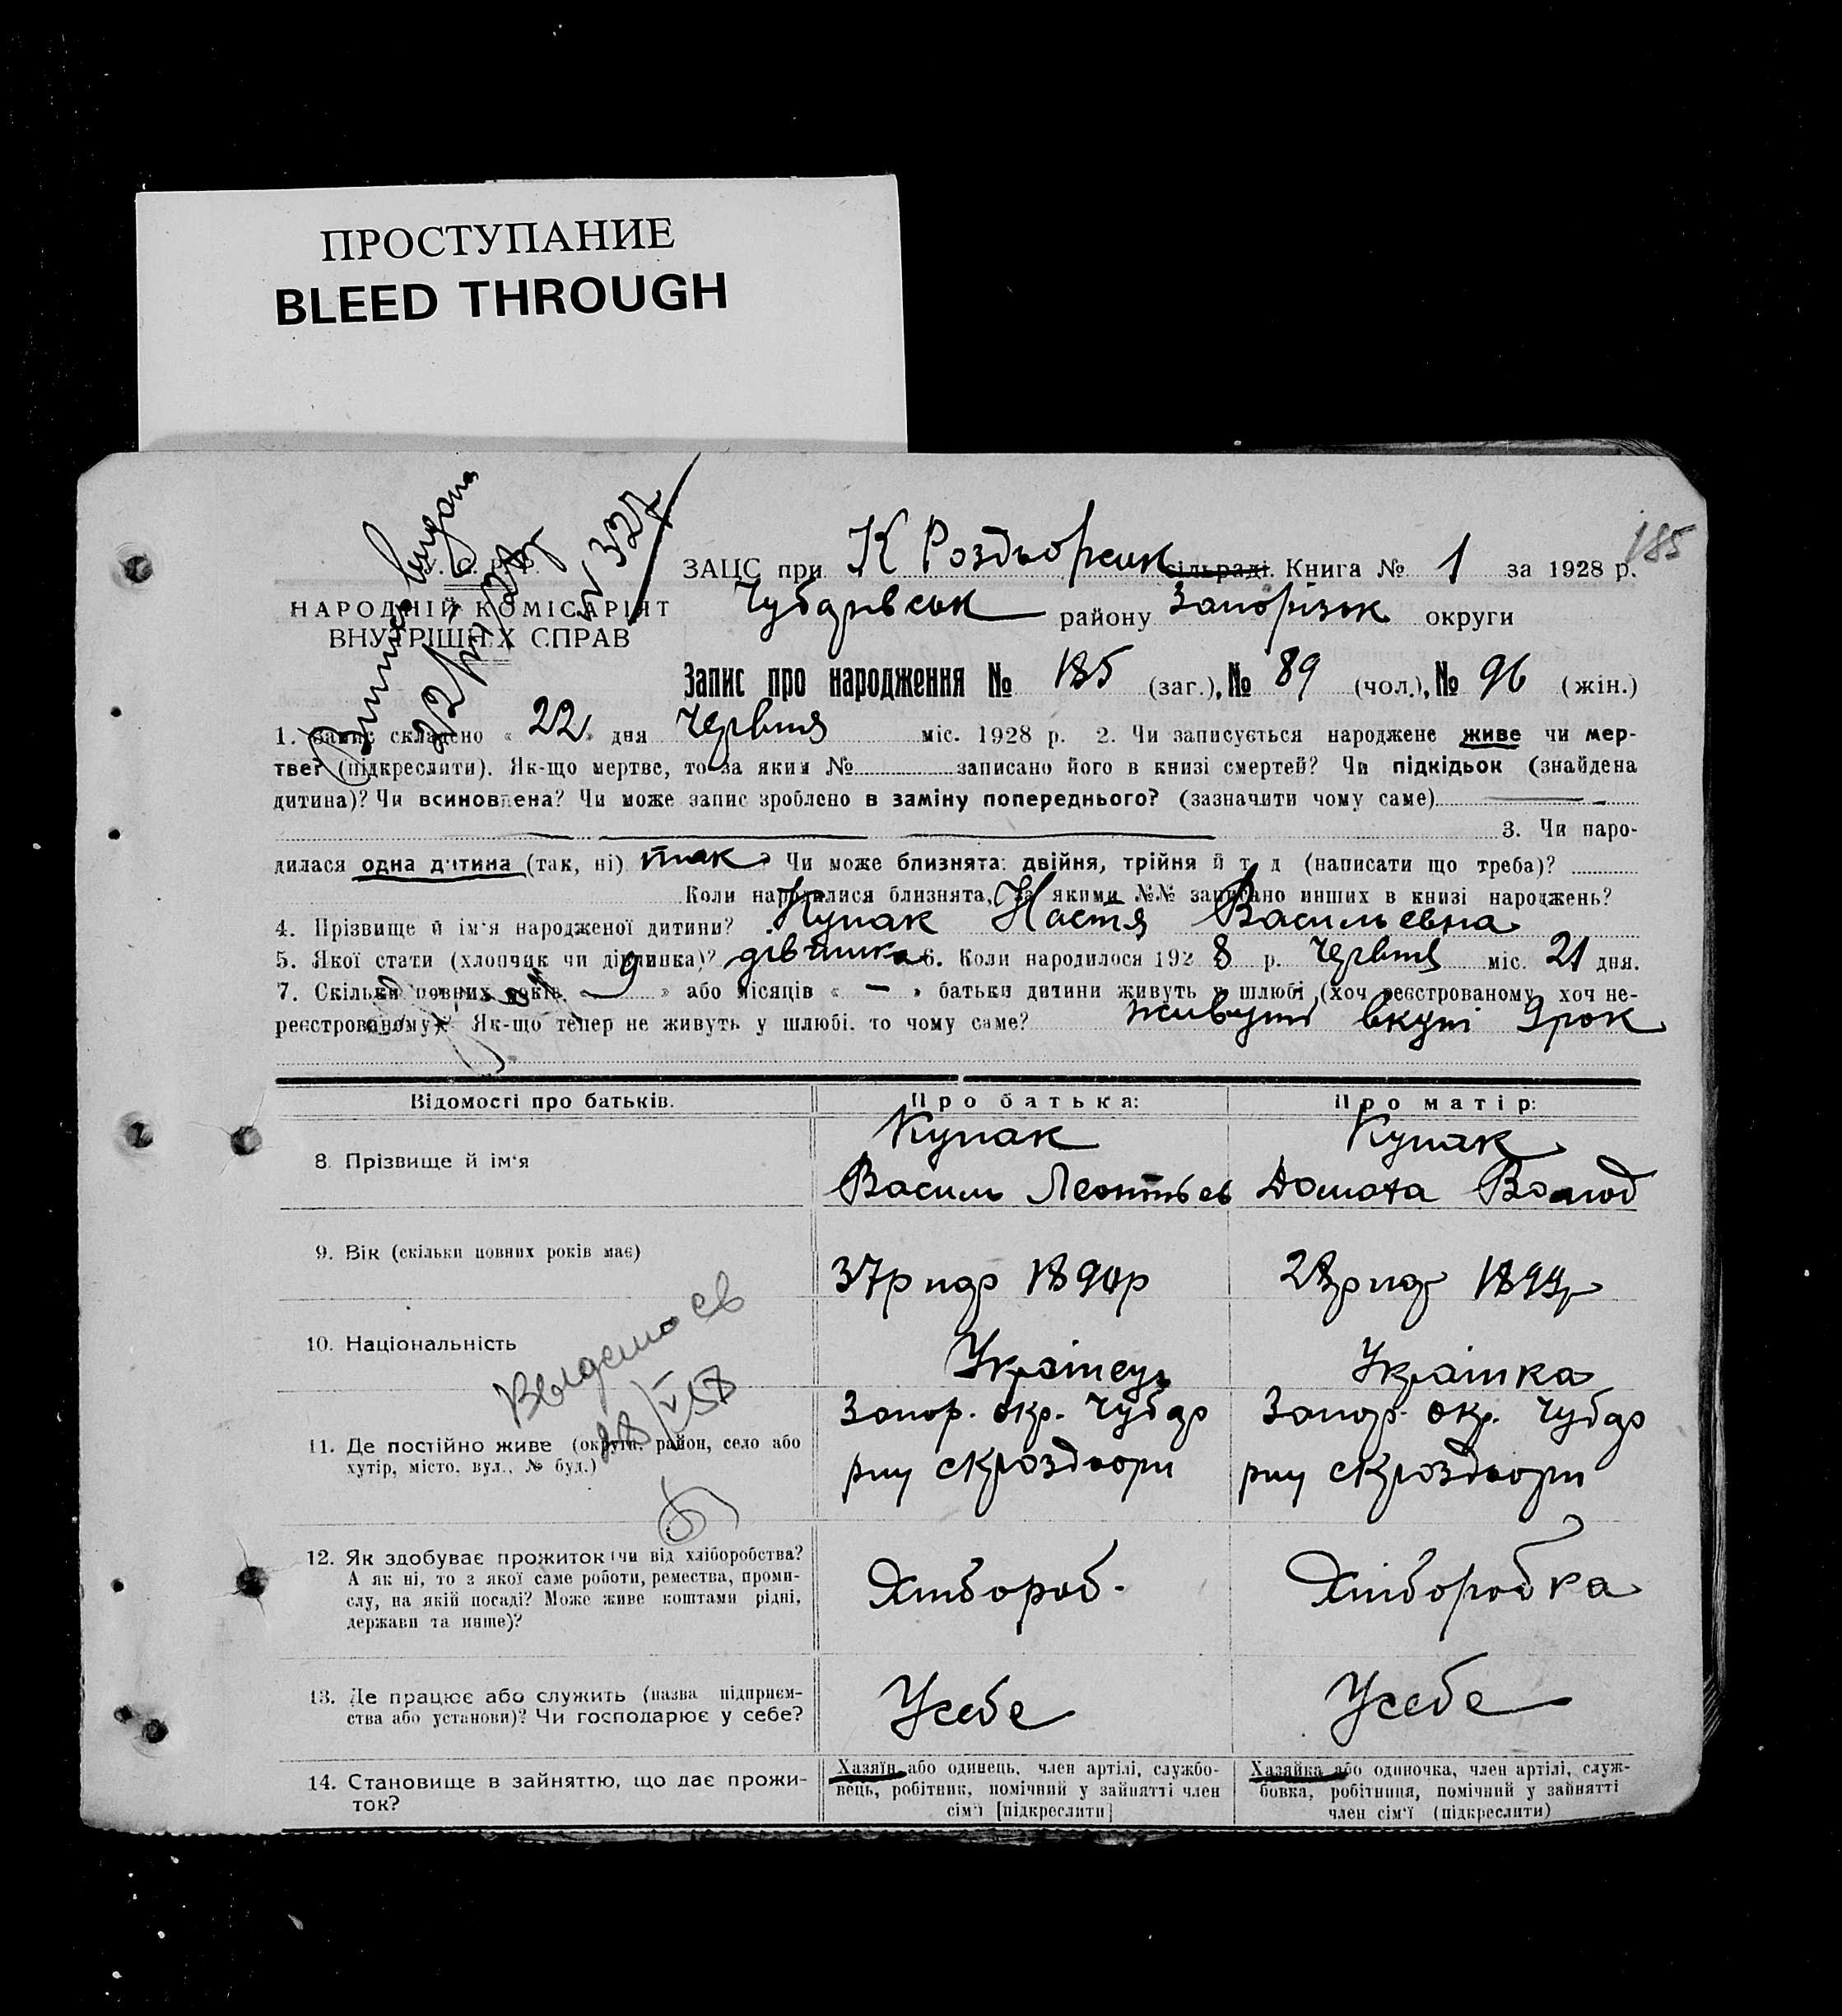 ПРОСТУПАНИЕ
BLEED THROUGH
185
У. С. Р. Р.
НАРОДНІЙ КОМІСАРІЯТ
ВНУТРІШНІХ СПРАВ
№ 327
ЗАЦС при К Роздьорськ сільраді. Книга № 1 за 1928 р.
Чубарівськ району Запорізьк округи
Запис про народження № 185 (заг.), № 89 (чол.), № 96 (жін.)
1. Запис складено « 22 » дня Червня міс. 1928 р. 2. Чи записується народжене живе чи мер-
тве? (підкреслити). Як-що мертве, то за яким № записано його в книзі смертей? Чи підкідьок (знайдена
дитина)? Чи всиновлена? Чи може запис зроблено в заміну попереднього? (зазначити чому саме)
3. Чи наро-
дилася одна дитина (так, ні) так Чи може близнята: двійня, трійня й т д (написати що треба)?
Коли народилися близнята, за якими №№ записано инших в книзі народжень?
4. Прізвище й ім'я народженої дитини? Купак Настя Васильевна
5. Якої стати (хлопчик чи дівчинка)? дівчинка 6. Коли народилося 1928 р. Червня міс. 21 дня.
7. Скільки повних років « 9 » або місяців « — » батьки дитини живуть у шлюбі (хоч реєстрованому хоч не-
реєстрованому)? Як-що тепер не живуть у шлюбі, то чому саме? живуть вкупі 9 рок
Відомості про батьків. Про батька: Про матір:
8. Прізвище й ім'я
Купак Купак
Василь Леонтьев Домаха Волод
9. Вік (скільки повних років має)
37р нар 1890р 28р нар 1899р
10. Національність
Українець Українка
Выдано св
28/V 58
11. Де постійно живе (округа, район, село або
хутір, місто, вул., № буд.)
Запор. окр. Чубар Запор. окр. Чубар
рну с Кроздьори рну с Кроздьори
12. Як здобуває прожиток (чи від хліборобства?
А як ні, то з якої саме роботи, ремества, проми-
слу, на якій посаді? Може живе коштами рідні,
держави та инше)?
Хлібороб. Хліборобка
13. Де працює або служить (назва підприєм-
ства або установи)? Чи господарює у себе?
У себе У себе
14. Становище в зайняттю, що дає прожи-
ток?
Хазяїн або одинець, член артілі, службо-
вець, робітник, помічний у зайнятті член
сім'ї [підкреслити]
Хазяйка або одиночка, член артілі, служ-
бовка, робітниця, помічний у зайнятті
член сім'ї (підкреслити)